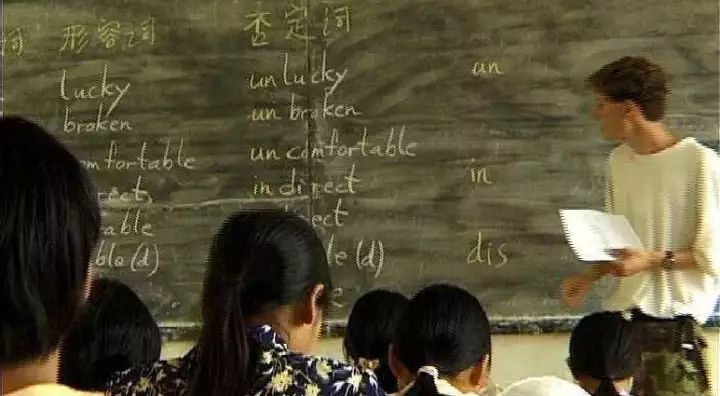 词 形容词 查定词
lucky unlucky un
broken unbroken
omfortable uncomfortable in
rect indirect
able ect
ble(d) le(d) dis